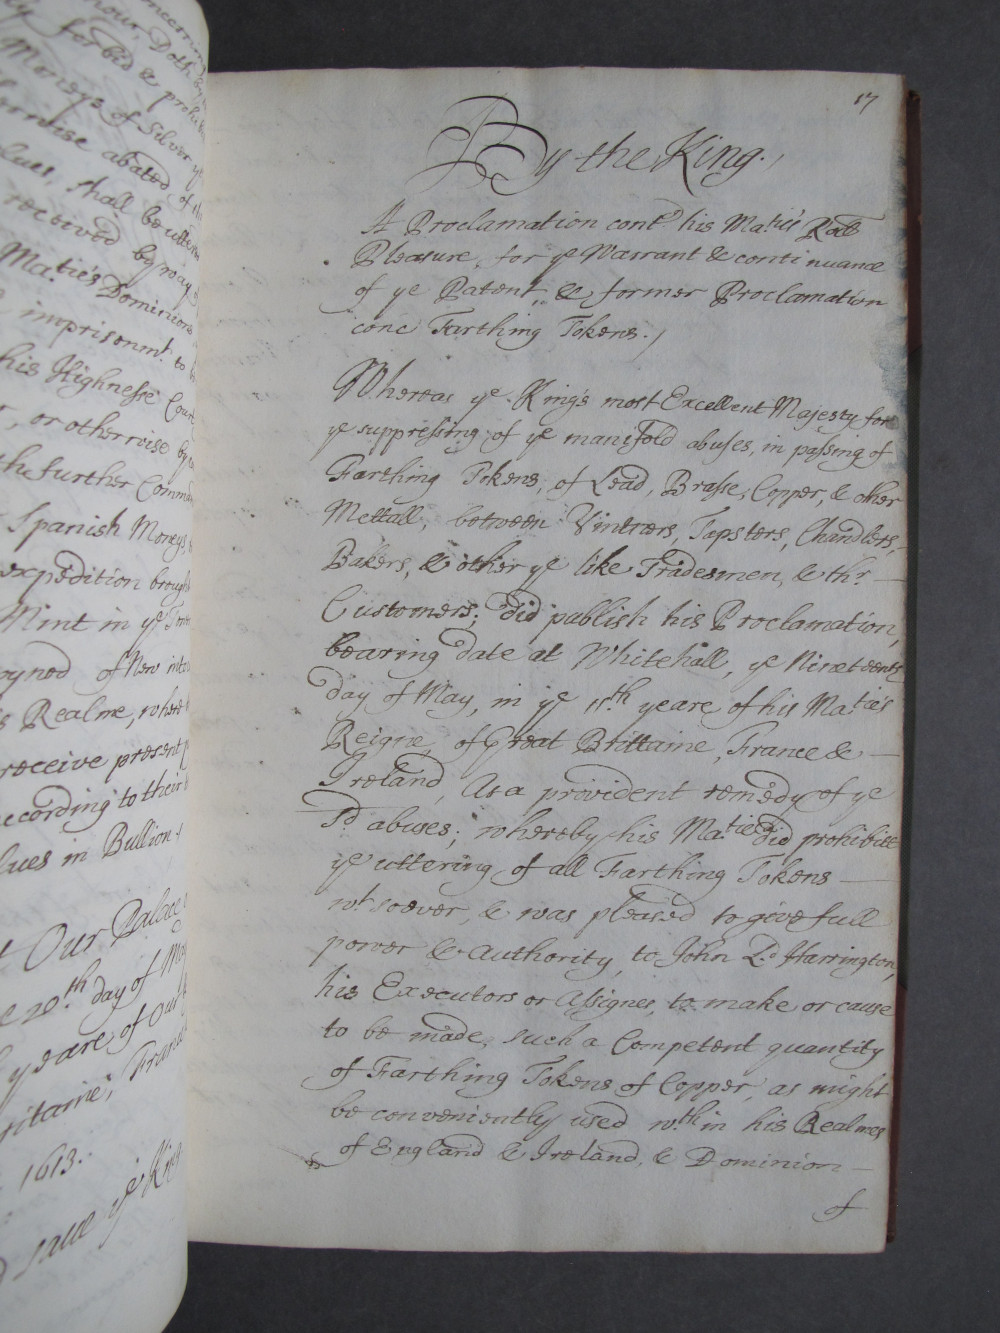 oncerning
hour, Doth
forbid & prohi
Moneys of Silver
abated of
lues, shall be utte
received by way
Maties Dominions
imprisonmt. to
his Highnesse Cour
, or otherwise by
further Comma
Spanish Moneys,
expedition brough
Mint in ye Tow
oyned of New into
s Realme, where
receive present
ccording to their
lues in Bullion
t Our Palace
20.th day of Ma
yeare of Our
ritaine, Franc
1613.
save ye Kin
17
By the King.
A Proclamation cont. his Matie's
Pleasure, for ye Warrant & continuance
of ye Patent, & former Proclamation
conc Farthing Tokens.
Whereas ye King's most Excellent Majesty for
ye suppressing of ye manifold abuses, in passing of
Farthing Tokens, of Lead, Brasse, Copper, & other
Mettall, between Vintners, Tapsters, Chandlers,
Bakers, & other ye like Tradesmen, & thr
Customers; did publish his Proclamation,
bearing date at Whitehall, ye Nineteenth
day of May, in ye 11.th yeare of his Matie's
Reigne, of Great Brittaine, France &
Ireland, As a provident remedy of ye
sd abuses; whereby his Matie did prohibitt
ye uttering of all Farthing Tokens
wt. soever, & was pleased to give full
power & Authority, to John Ld. Harrington,
his Executors or Assignes, to make or cause
to be made, such a Competent quantity
of Farthing Tokens of Copper, as might
be conveniently used wth.in his Realmes
of England & Ireland, & Dominion
of